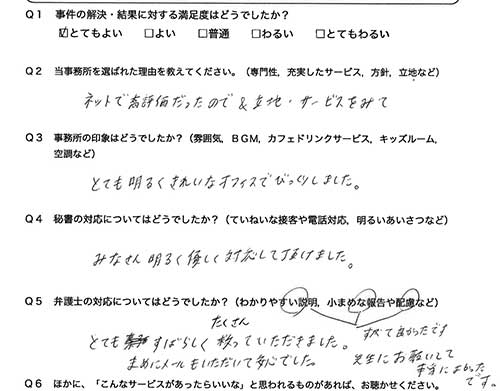 Q1 事件の解決・結果に対する満足度はどうでしたか?
☑とてもよい □よい □普通 □わるい □とてもわるい
Q2 当事務所を選ばれた理由を教えてください。(専門性,充実したサービス,方針,立地など)
ネットで高評価だったので & 立地・サービスをみて
Q3 事務所の印象はどうでしたか?(雰囲気,BGM,カフェドリンクサービス,キッズルーム,
空調など)
とても明るくきれいなオフィスでびっくりしました。
Q4 秘書の対応についてはどうでしたか?(ていねいな接客や電話対応,明るいあいさつなど)
みなさん明るく優しく対応して頂けました。
Q5 弁護士の対応についてはどうでしたか?(わかりやすい説明,小まめな報告や配慮など)
たくさん
すべて良かったです
とても すばらしく 移っていただきました。
まめにメールもいただいて安心でした。
先生にお願いして
本当によかった
です。
Q6 ほかに、「こんなサービスがあったらいいな」と思われるものがあれば、お聞かせください。